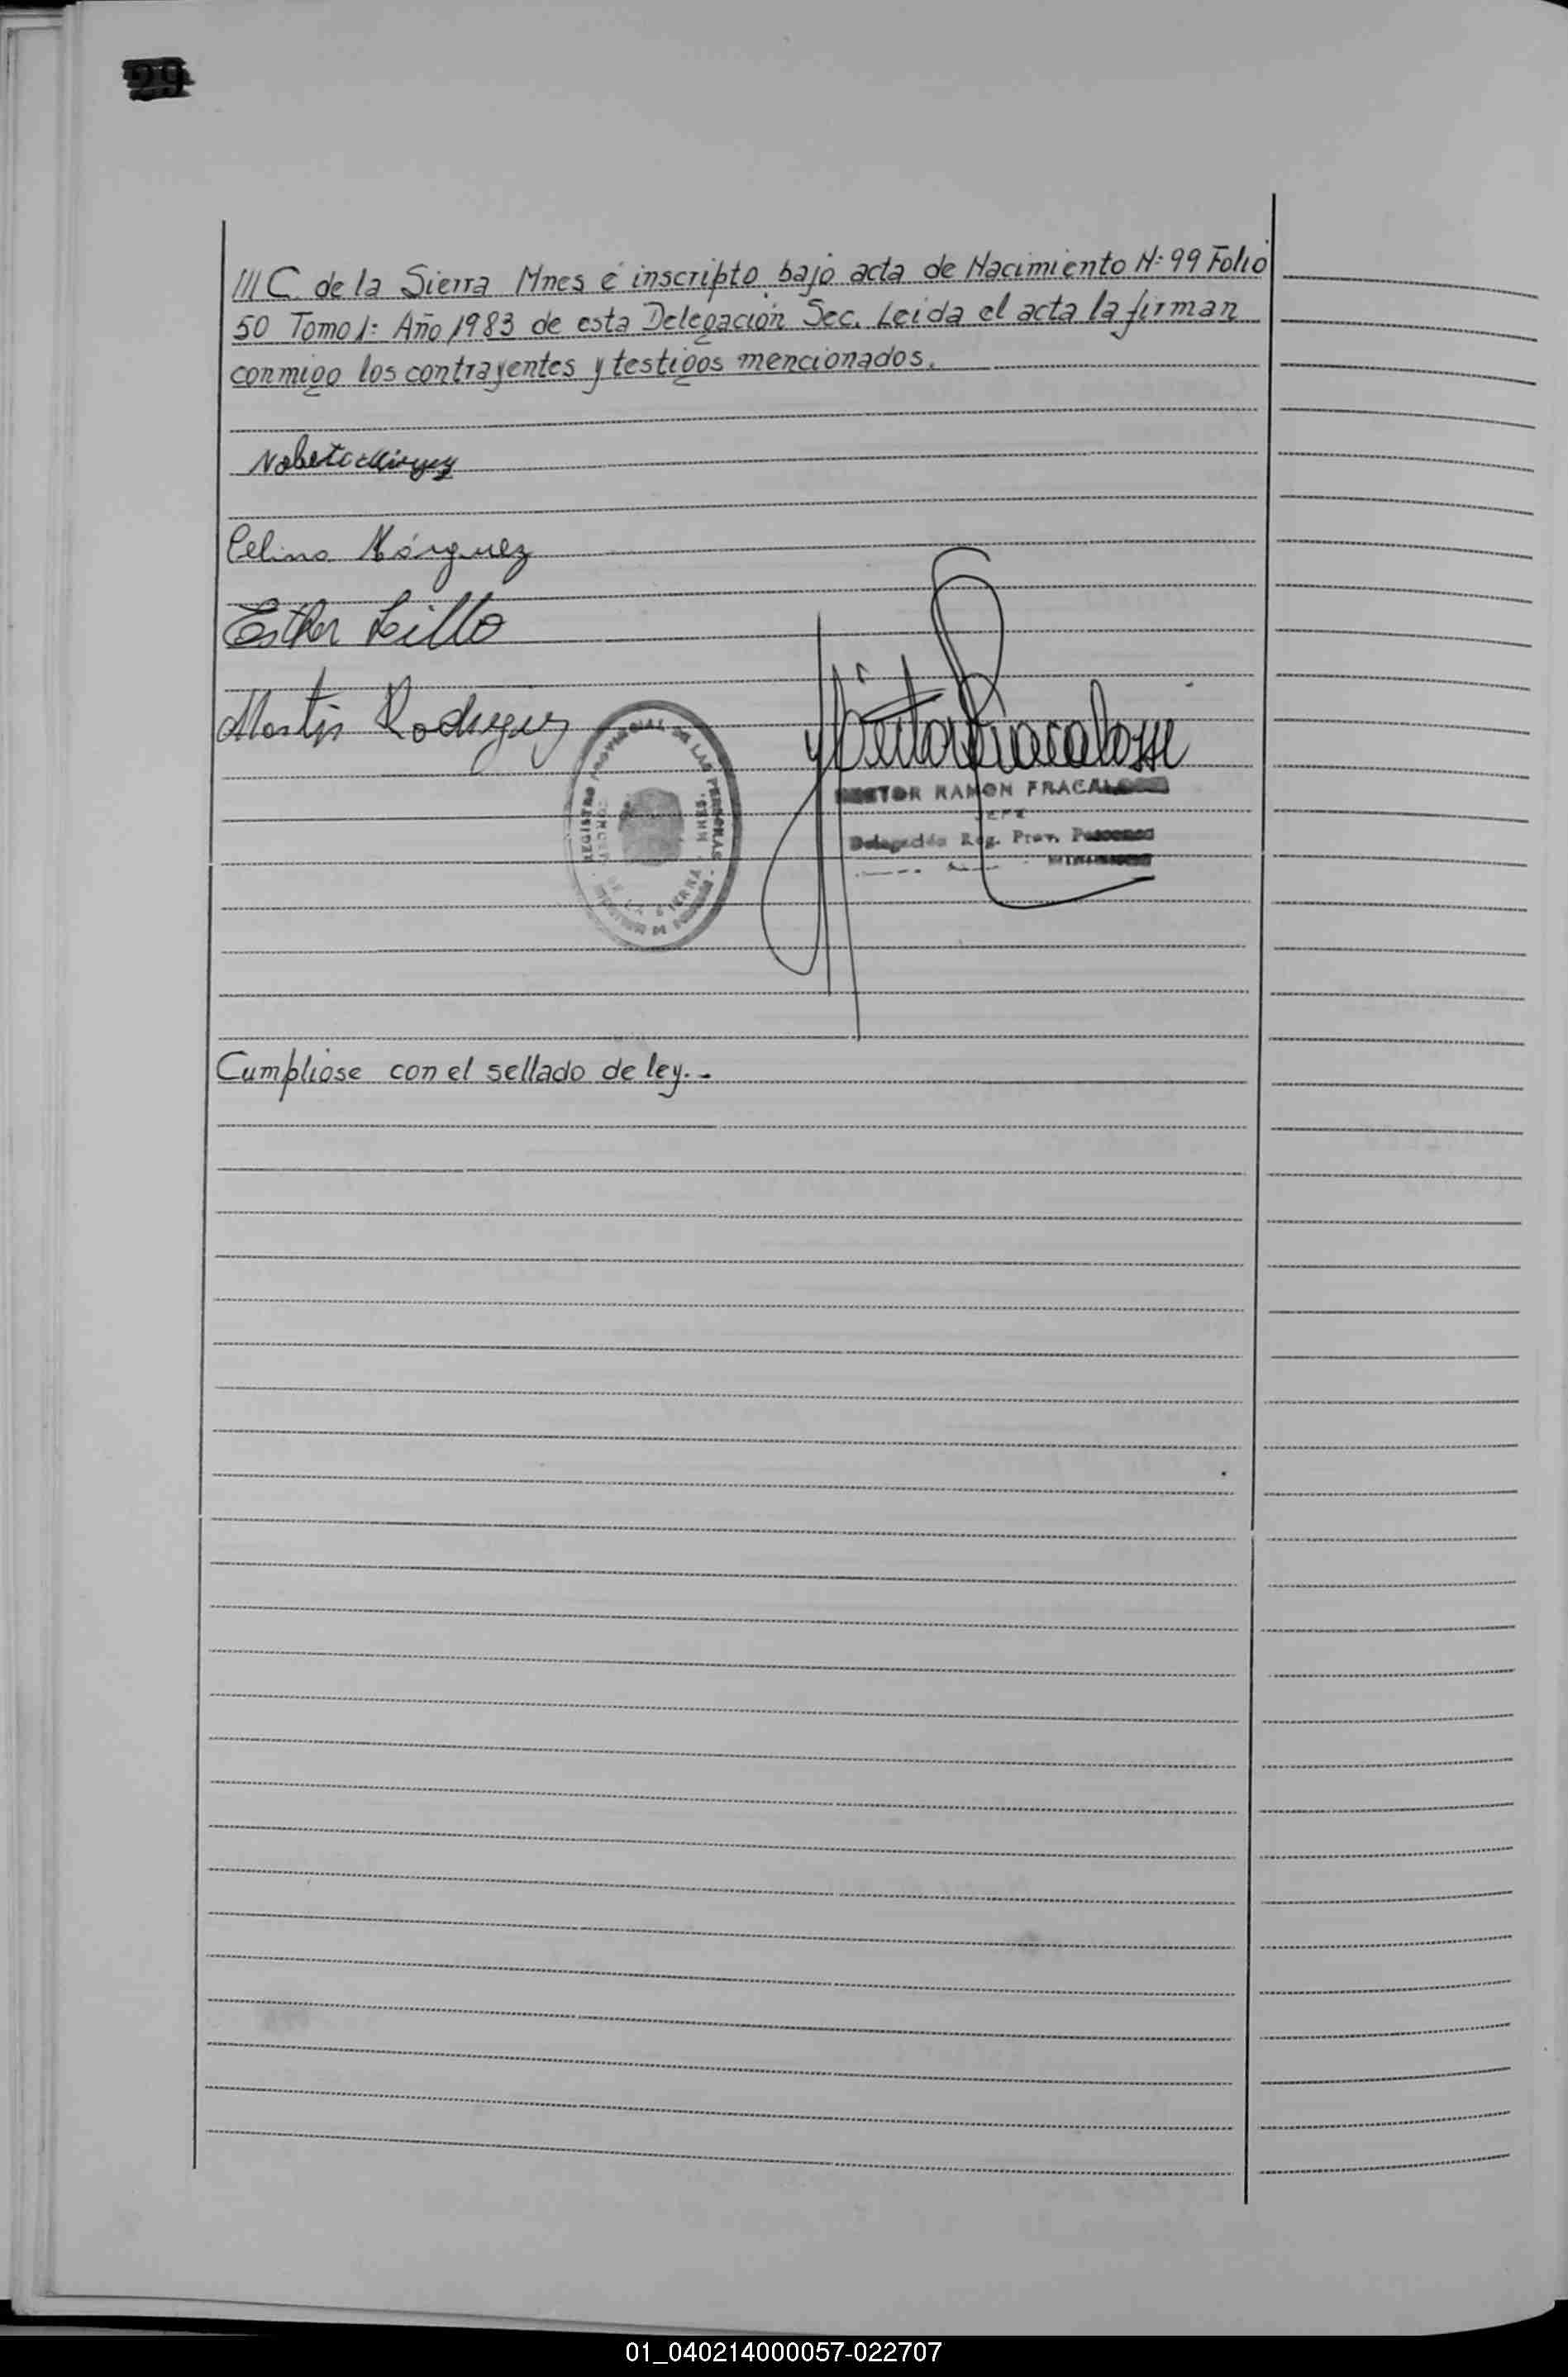 29
/// C. de la Sierra Mnes é inscripto bajo acta de Nacimiento N: 99 Folio
50 Tomo 1: Año 1983 de esta Delegación Sec. Leida el acta la firman
conmigo los contrayentes y testigos mencionados.
Celina Márquez
Esther Lillo
Martin Rodriguez
REGISTRO PROVINCIAL DE LAS PERSONAS
SIERRA MNES.
Hector Fracalossi
RAMON FRACALOSSI
JEFE
Delegación Reg. Prov. Personas
Cumpliose con el sellado de ley.-
01_040214000057-022707